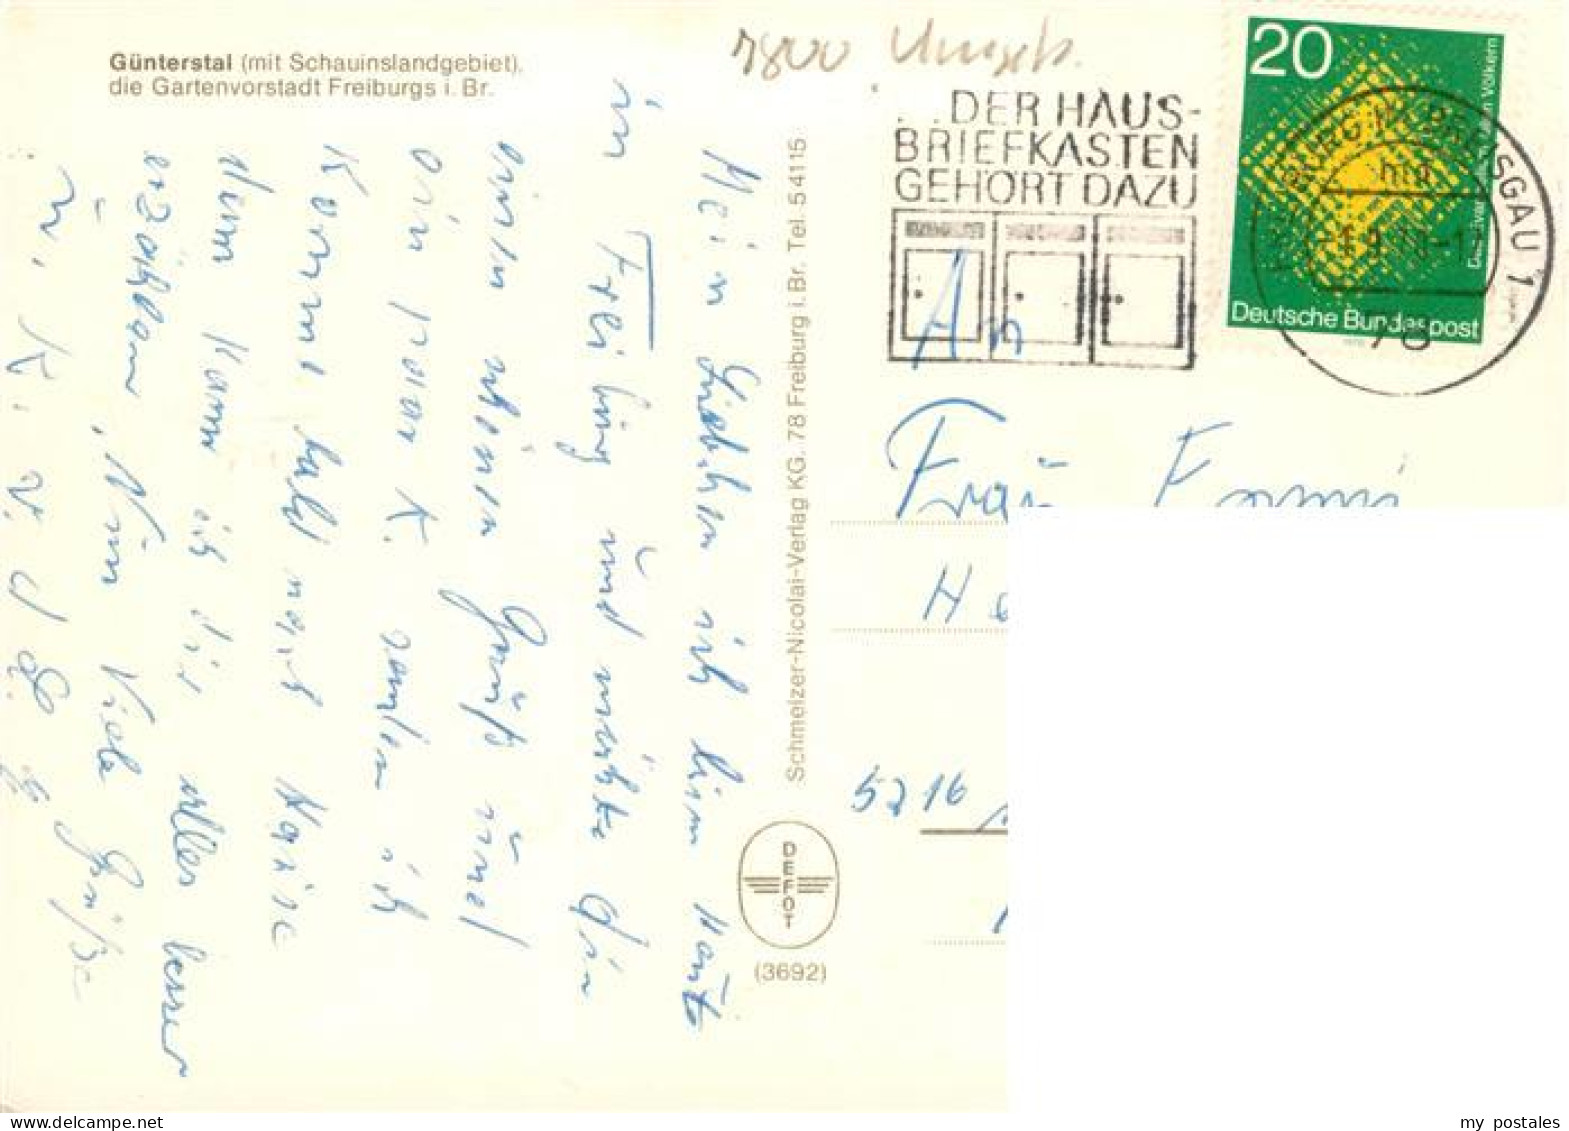 Günterstal (mit Schauinslandgebiet),
die Gartenvorstadt Freiburgs i. Br.
7800
. . . DER HAUS-
BRIEFKASTEN
GEHÖRT DAZU
20
Völkern
Deutsche Bundespost
BURG IM BREISGAU 1
78
Mein Liebchen ich bin heute
in Freiburg und möchte Dir
einen schönen Gruß und
ein paar K. senden ich
komme bald nach Hause
dann kann ich dir alles besser
erzählen, Nun Viele Grüße
u. K. v. d
Schmelzer-Nicolai-Verlag KG. 78 Freiburg i. Br. Tel. 54115
DEFOT
(3692)
An
Frau
5216
my postales
delcampe.net